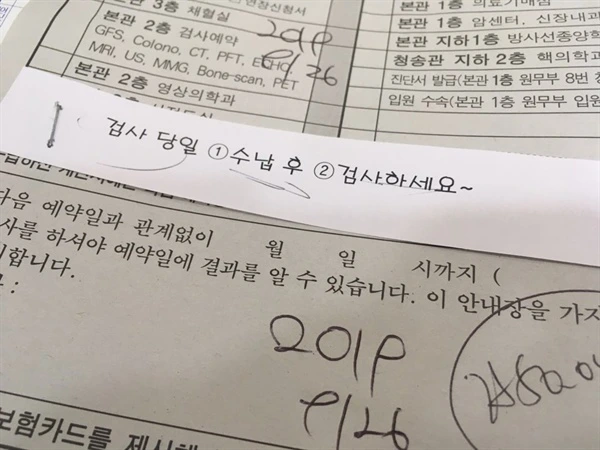 본관 3층 채혈실
본관 2층 검사예약
GFS, Colono, CT, PFT, ECHO
MRI, US, MMG, Bone-scan, PET
본관 2층 영상의학과
2019
9/26
본관 1층
본관 1층 암센터, 신장내과
본관 지하1층 방사선종양학
청송관 지하 2층 핵의학과
진단서 발급(본관 1층 원무부 8번 창
입원 수속(본관 1층 원무부 입원
검사 당일 ①수납 후 ②검사하세요~
다음 예약일과 관계없이 월 일 시까지 (
사를 하셔야 예약일에 결과를 알 수 있습니다. 이 안내장을 가지
합니다.
2019
9/26
보험카드를 제시해